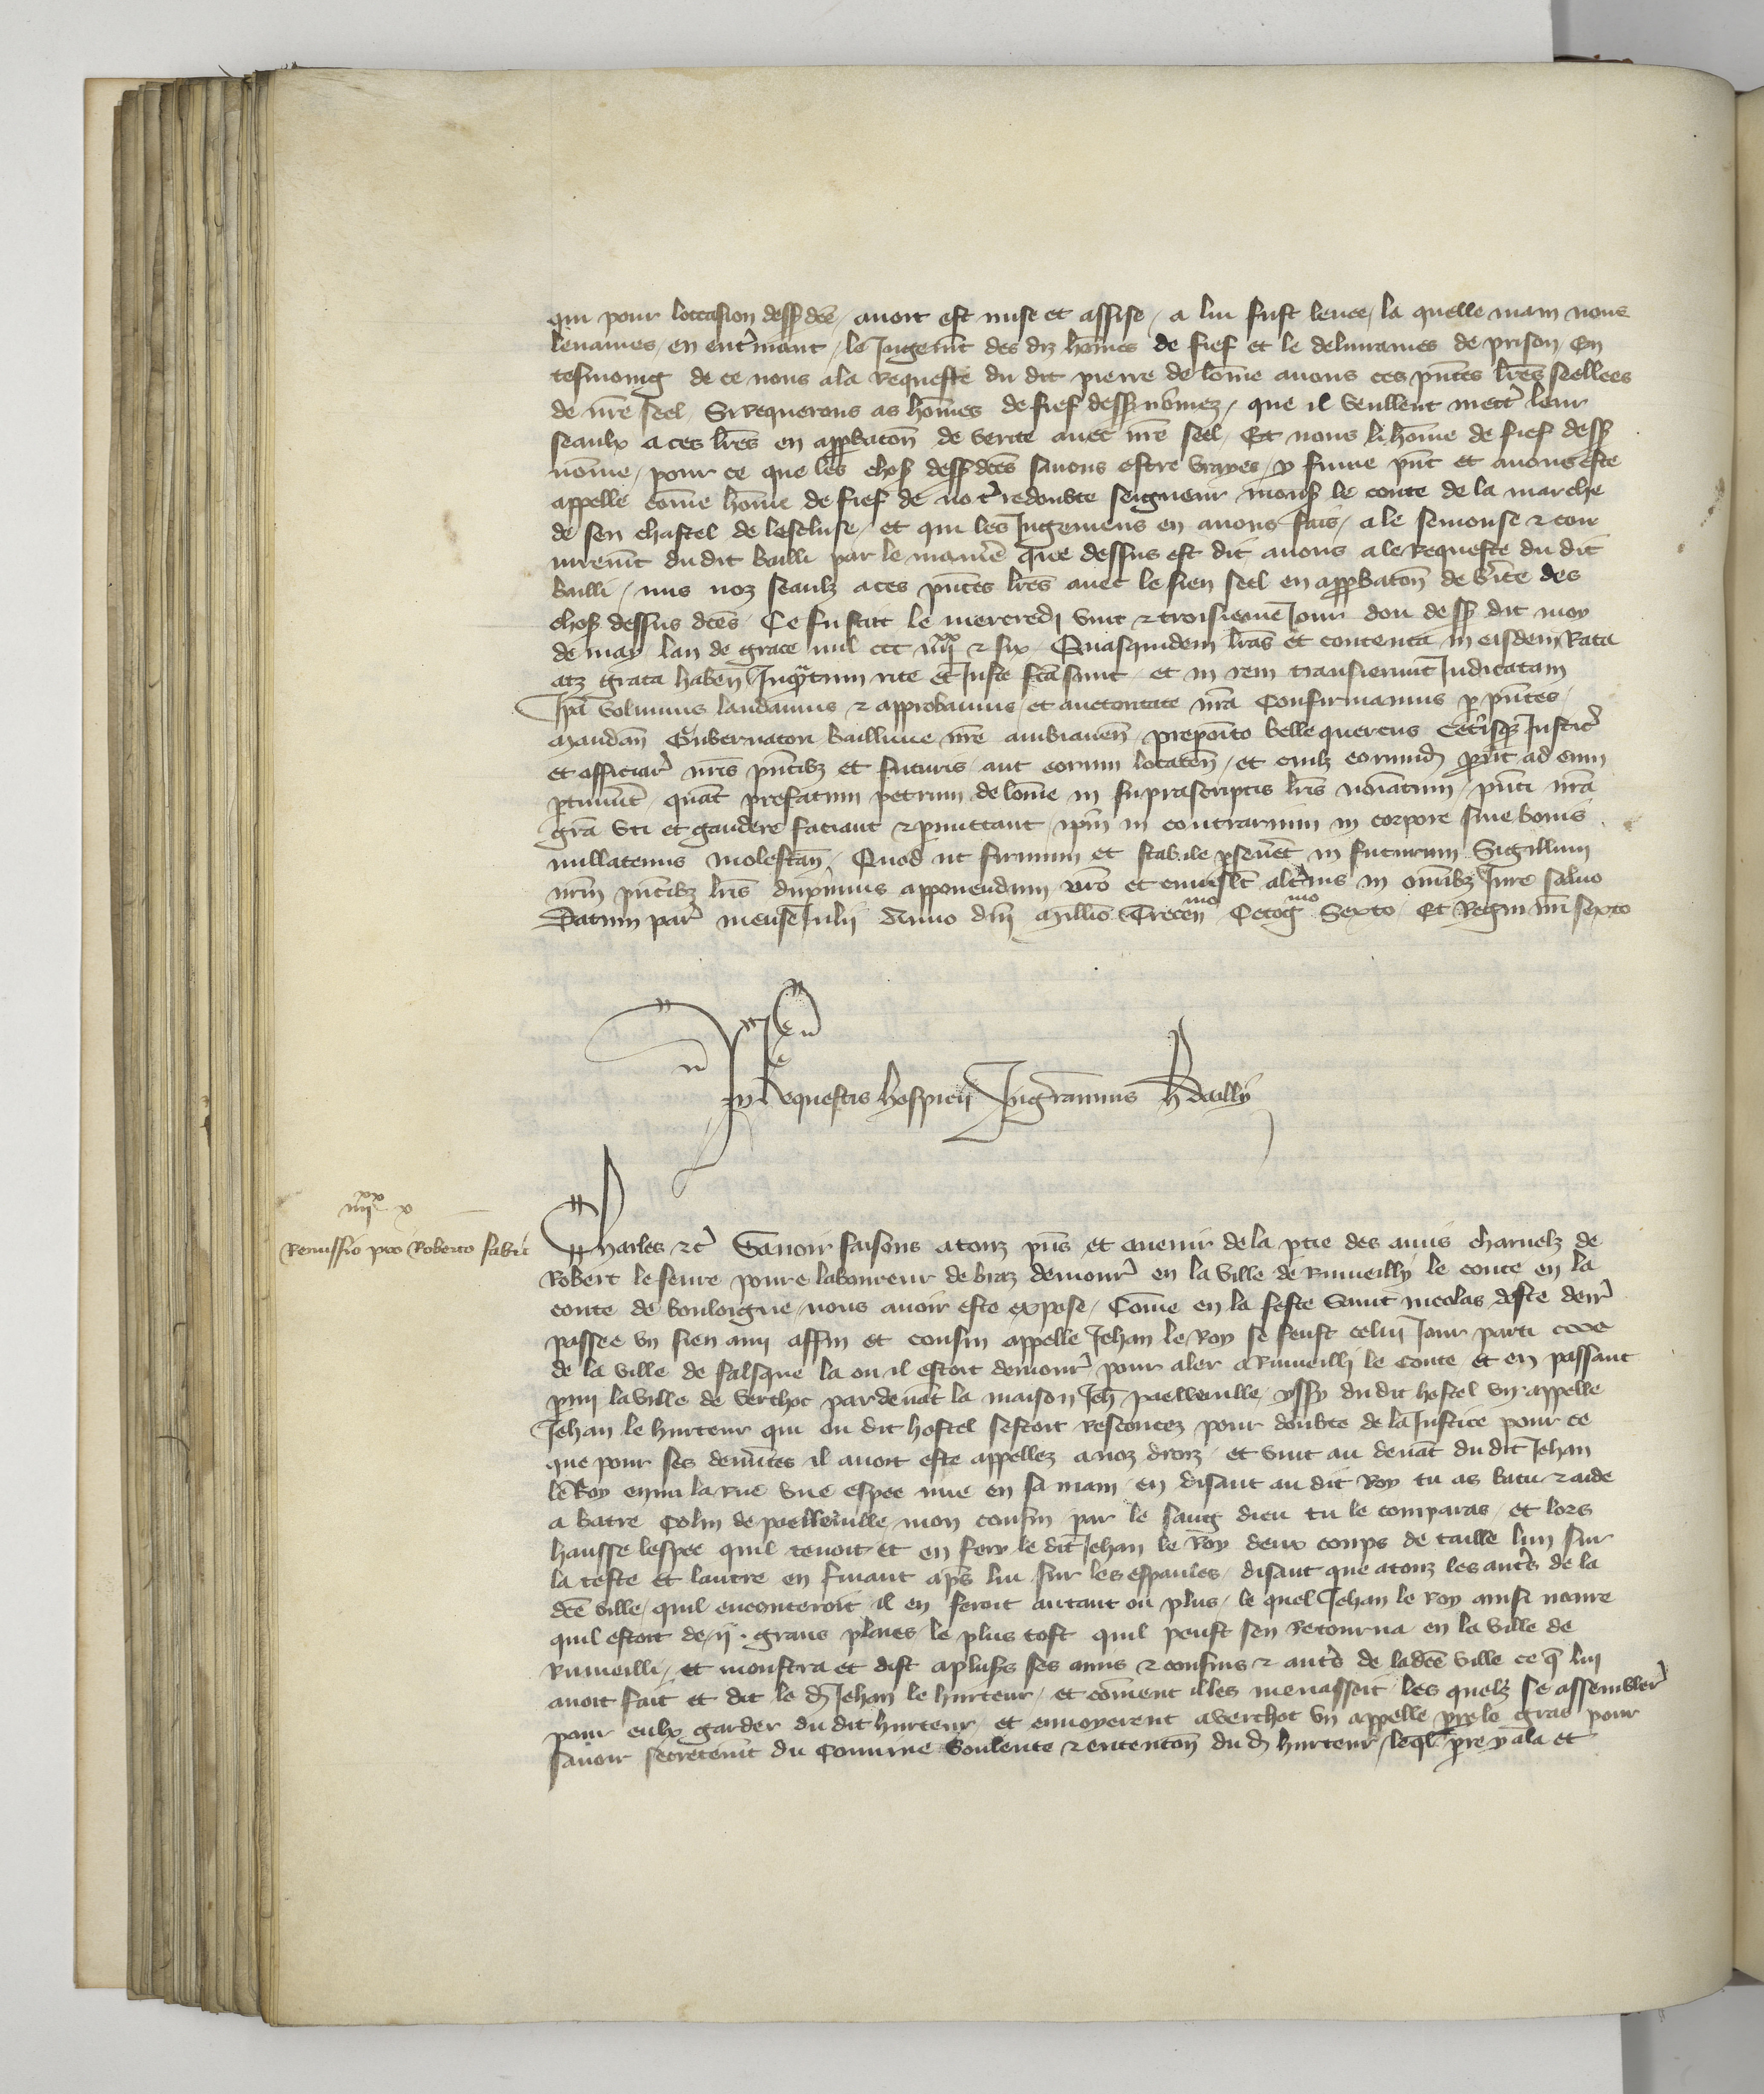 qui pour loccasion dessusdce / auoit est mise et assise / a lui fust leuee / la quelle main nous
leuames / en enterinant / le Jugemt des diz hommes de fief et le deliurames de prison / En
tesmoing de ce nous a la Requeste du dit pierre de lomme auons ces pntes lres seellees
de nre seel / Si requerons as hommes de fief dessus nommez / que il veullent mettr leur
seaulx a ces lres en approbaton de verite auec nre seel / Et nous li homme de fief dessus
nomme / pour ce que les choses dessusdces sauons estre vrayes / y fume pnt et auons este
appelle comme homme de fief de notr redoubte seigneur mons le conte de la marche
de son chastel de lescluse / et qui les Jugemens en auons fais / a le semonse & con
iuremt du dit bailli par le maniere que dessus est dit auons a le Requeste du dit
bailli / mis noz seaulz a ces pntes lres auec le sien seel en approbaton de vite des
choses dessus dces / Ce fu fait le mercredi vint & troisieme Jour dou dessus dit moy
de may lan de grace mil ccc iiijxx & six / Quasquidem lras et contenta in eisdem Rata
atz grata haben Inquantum rite et Juste fca sunt / et in rem transierunt Judicatam
Ipa volumus laudamus & approbamus / et auctoritate nra Confirmamus p pntes /
mandan Gubernatori Balliuie nre ambianen / preposito belle quercus Cetisq Justic
et officiar nris pntibz et futuris / aut eorum locaten / et cuilz eorumd prout ad eum
ptinuit / quat prefatum petrum de lomme in suprascriptis lris noiatum / pnti nra
gra vti et gaudere faciant & pmittant / ipm in contrarium in corpore siue bonis
nullatenus molestan / Quod ut firmum et stabile pseuet in futurum Sigillum
nrm pntibz lris duximus apponendum nro et cuiuslt altius in omibz Jure saluo
Datum par mense Julii Anno dni Millio Trecenmo Octogmo Sexto / Et Regni nri sexto
In Requestis hospicij Jngrannus h dailly
iiijxx x
Remissio pro Roberto fabri
Charles &c Sauoir faisons a touz pns et auenir de la ptie des amis charnelz de
Robert lefeure poure laboureur de braz demour en la ville de Rumeilly le conte en la
conte de bouloigne / nous auoir este expose / Comme en la feste Saint nicolas deste denr
passee vn sien ami affin et cousin appelle Jehan le Roy se feust celui Jour parti
de la ville de falsque la ou il estoit demour pour aler a Rumeilli le conte et en passant
pmi la ville de verchoc par deuat la maison Jeh paelleuille / yssy du dit hostel vn appelle
Jehan le hurteur qui ou dit hostel sestoit Resconcez pour doubte de la Justice pour ce
que pour ses demites il auoit este appellez a noz droiz / et vint au deuat du dit Jehan
le Roy enmi la rue vne espee nue en sa main / en disant au dit Roy tu as batu & aide
a batre Colin de paelleuille / mon cousin par le sang dieu tu le comparas / et lors
hausse lespee quil tenoit et en fery le dit Jehan le Roy deux coups de taille lun sur
la teste et lautre en fuiant aps lui sur les espaules / disant que a touz les autrs de la
dce ville / quil enconteroit il en feroit autant ou plus / le quel Jehan le Roy ainsi naure
quil estoit de .ij. grans plaies le plus tost quil peust sen Retourna en la ville de
Rumeilli / et monstra et dist a plusrs ses amis & cousins & autrs de la dce ville ce q lui
auoit fait et dit le d Jehan le hurteur / et comment il les menassoit / les quelz se assembler
pour eulx garder du dit hurteur / et enuoyerent a verchoc vn appelle pre le gras pour
sauoir secretemt du Conuine voulente & ententon du d hurteur / leql pre y ala et